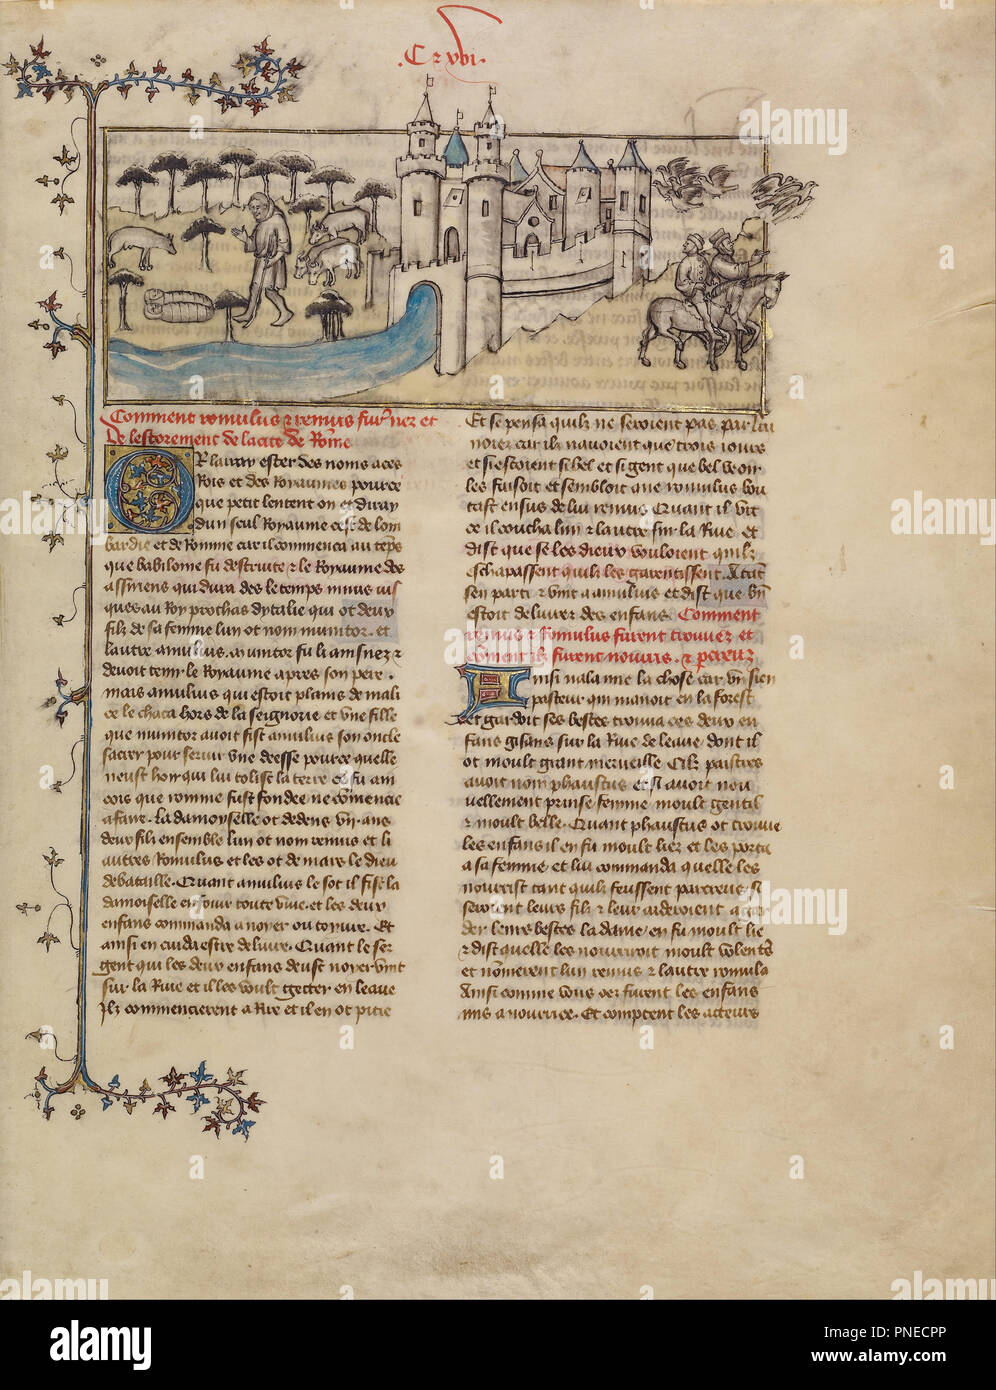 .C xvi.
Comment romulus z remus furent nez et
De lestorement de la cite de Rome
OR laray ester des noms a ces
Rois et des Royaumes pource
que petit lentent on et diray
dun seul Royaume cest de lom
bardie et de Romme car il commenca au temps
que babiloine fu destruite z le Royaume des
assiriens qui dura des le temps ninus
ques au Roy prochas dytalie qui ot deux
filz de sa femme lun ot nom numitor. et
lautre amulius. numitor fu li ainsnez z
devoit tenir le Royaume apres son pere.
mais amulius qui estoit plains de mali
ce le chaca hors de la seignorie et une fille
que numitor avoit fist amulius son oncle
sacrer pour servir une deesse pource quelle
neust hoir qui lui tolist la terre et fu ain
cois que romme fust fondee ne comencie
a faire. La damoyselle ot dedens un an
deux filz ensemble lun ot nom remus et li
autres Romulus et les ot de mars le dieu
de bataille. Quant amulius le sot il fist la
damoiselle enfouir toute vive et les deux
enfans commanda a noyer ou
ainsi en cuida estre delivre. Quant le ser
gent qui les deux enfans deust noyer vint
sur la Rive et il les voult getter en leaue
Ilz commencierent a Rire et il en ot pitie
Et se pensa quilz ne seroient pas par lui
noiez car ilz navoient que trois iours
et si estoient si bel et si gent que bel veoir
les faisoit et sembloit que romulus bou
tast en sus de lui remus Quant il vit
ce il coucha lun z lautre sur la Rive et
dist que se les dieux vouloient quilz
eschapassent quilz les garentissent. Atant
sen parti z vint a amulius et dist que bien
estoit delivrez des enfans. Comment
remus z Romulus furent trouvez et
coment ilz furent nourris. z
Ainsi nala mie la chose car un sien
pasteur qui manoit en la forest
et gardoit ses bestes trouva ces deux en
fans gisans sur la Rive de leaue dont il
ot moult grant merveille Cilz paistres
avoit nom phaustus et si avoit nou
vellement prinse femme moult gentil
z moult belle. Quant phaustus ot trouve
les enfans il en fu moult liez et les porta
a sa femme et lui commanda quelle les
nourrist tant quilz feussent parcreuz. si
seroient leurs filz z leur aideroient a gar
der leurs bestes la dame en fu moult lie
z dist quelle les nourriroit moult volentiers
et nommerent lun remus z lautre romulus
Ainsi comme vous oez furent les enfans
mis a nourrice. Et comptent les acteurs
alamy
Image ID: PNECPP
www.alamy.com